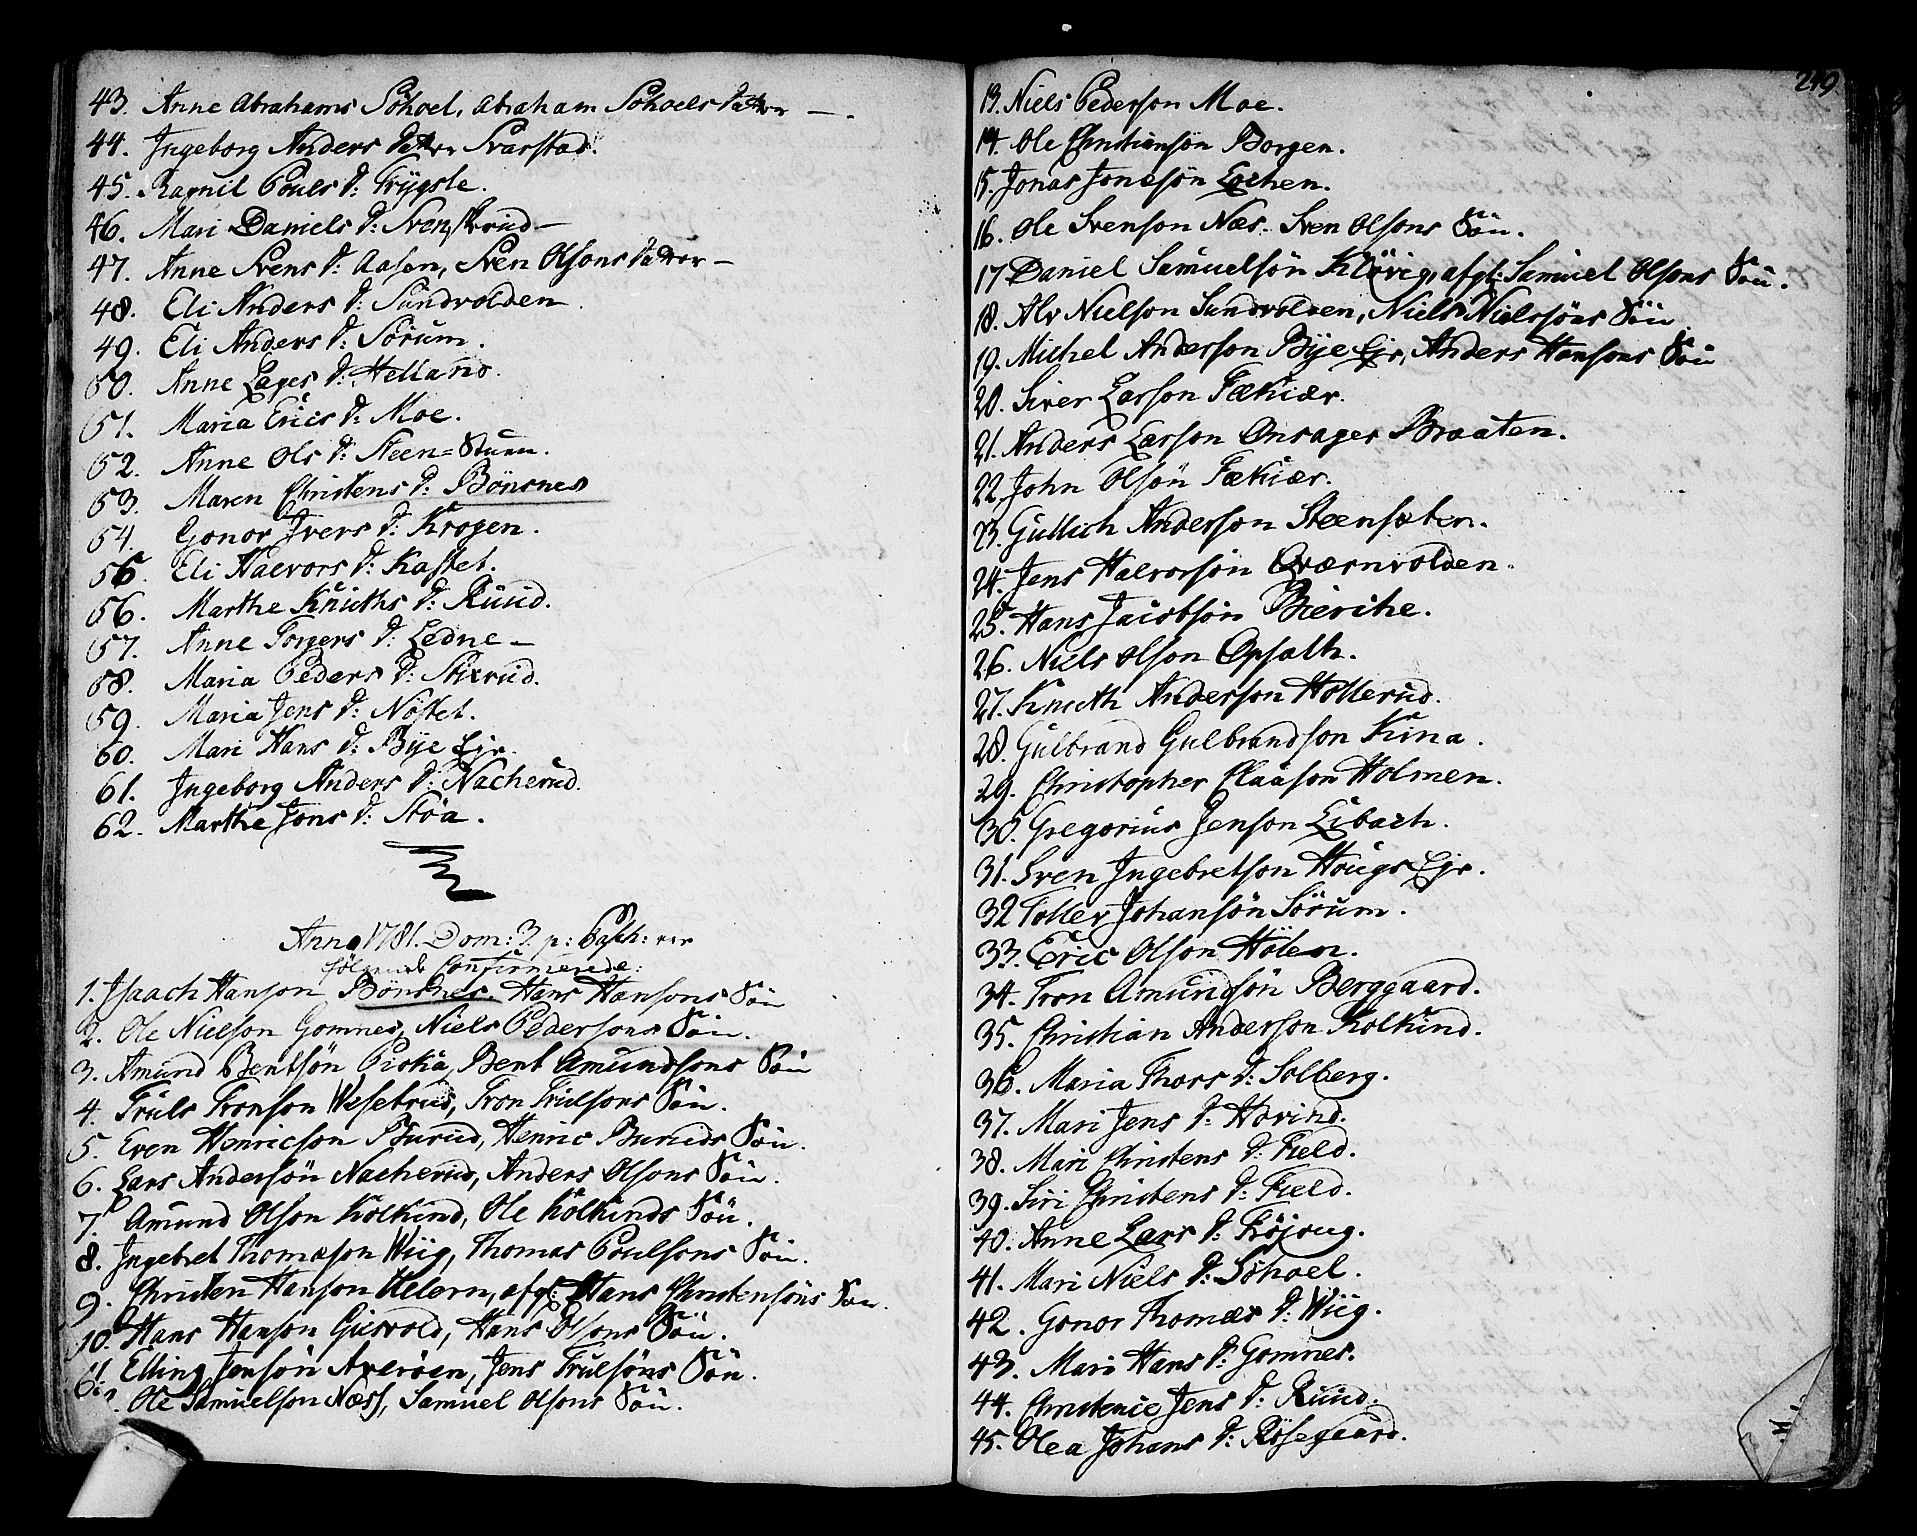 43. Anne Abrahams Sohoel, Abraham Sohoels Datter —.
44. Ingeborg Anders Datter Svarstad.
45. Ragnil Pouls D: Frÿgsle.
46. Mari Daniels D: Svenskrud —
47. Anne Svens D: Aasen, Sven Olsons Datter —
48. Eli Anders D: Sundvolden
49. Eli Anders D: Sörum.
50. Anne Lages D: Helland.
51. Maria Erics D: Moe.
52. Anne Ols D: Steen=Stuen.
53. Maren Christens D: Bönsnes
54. Gonor Ivers D: Krogen.
55. Eli Halvors D: Kastet.
56. Marthe Knuths D: Ruud.
57. Anne Torgers D: Ledne —
58. Maria Peders D: Stixrud.
59. Maria Jens D: Nöstet.
60. Mari Hans D: Bÿe Eje.
61. Ingeborg Anders D: Nacherud.
62. Marthe Jons D: Stöa.
Anno 1781. Dom: 3. p: Pasch:
fölgende Confirmerede:
1. Isaach Hanson Bönsnes. Hans Hansons Sön
2. Ole Nielson Gomnes, Niels Pedersons Sön.
3. Amund Bentsön Piska, Bent Amundsons Sön
4. Truls Tronson Wesetrud, Tron Trulsons Sön.
5. Even Henricson Burud, Henric Buruds Sön.
6. Lars Andersön Nacherud, Anders Olsons Sön.
7. Amund Olson Kolkind, Ole Kolkinds Sön.
8. Ingebret Thomason Wiig, Thomas Poulsons Sön.
9. Christen Hanson Ulern, afg: Hans Christensöns Sön.
10. Hans Hanson Giesvold, Hans Olsons Sön.
11. Elling Jensön Averöen, Jens Trulsöns Sön.
12. Ole Samuelson Næss, Samuel Olsons Sön.
219
13. Niels Pederson Moe.
14. Ole Christiansön Borgen.
15. Jonas Jonesön Lochen.
16. Ole Svenson Næs. Sven Olsons Sön.
17 Daniel Samuelsön Klövig, afg: Samuel Olsons Sön.
18. Alv Nielson Sundvolden, Niels Nielssöns Sön
19. Michel Anderson Bÿe Eje, Anders Hansons Sön
20. Siver Larson Fækiær.
21. Anders Larson Onsager Braaten.
22. John Olsön Fækiær.
23. Gullich Anderson Steensæten.
24. Jens Halvorsön Qværnvolden.
25. Hans Jacobsön Bierche.
26. Niels Olson Opsalh.
27. Knuth Anderson Hollerud.
28. Gulbrand Gulbrandson Kina.
29. Christopher Claäson Holmen.
30. Gregorius Jenson Libach.
31. Sven Ingebretson Hougs Eje.
32 Toller Johansön Sörum.
33. Eric Olson Hölen.
34. Tron Amundsön Berggaard.
35. Christian Anderson Kolkind.
36. Maria Thors D: Solberg.
37. Mari Jens D: Hovind.
38. Mari Christens D: Field.
39. Siri Christens D: Field.
40. Anne Lars D: Fröjoug.
41. Mari Niels D: Sohoel.
42. Gonor Thomas D: Wiig.
43. Mari Hans D: Gomnes.
44. Christence Jens D: Ruud.
45. Olea Johans D: Rösegaard.